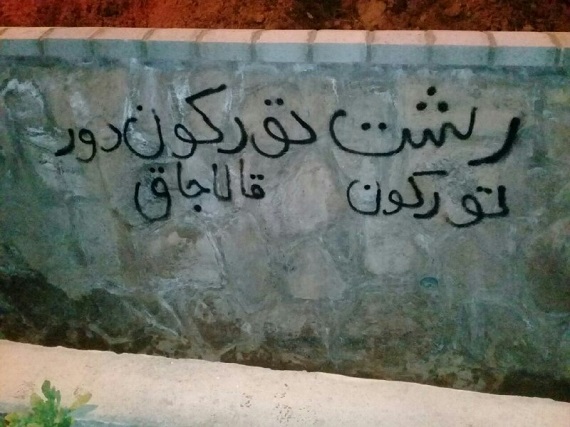 رشت تورکون دور
تورکون قالاجاق